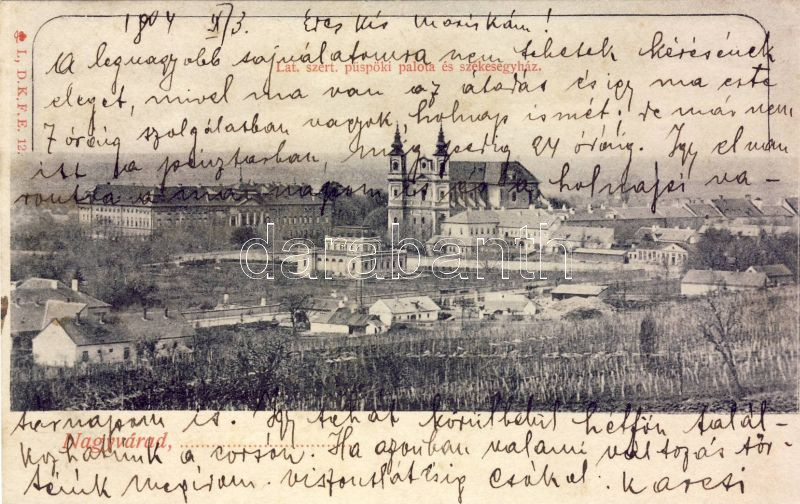 1904 X/3. Édes kis Mariskám!
A legnagyobb sajnálatomra nem tehetek kérésének
Lat. szert. püspöki palota és székesegyház.
eleget, mivel ma van az átadás és így ma este
7 óráig szolgálatban vagyok, holnap ismét, de már nem
itt a pénztárban, még pedig 24 óráig. Így el van
rontva a mai napom és a holnapi va-
darabanth
sárnapom is. Így tehát körülbelül hétfőn talál-
Nagyvárad,
kozhatunk a corsón. Ha azonban valami változás tör-
ténik megírom. viszontlátásig csókol. Karcsi
L, D.K.F.E. 12.